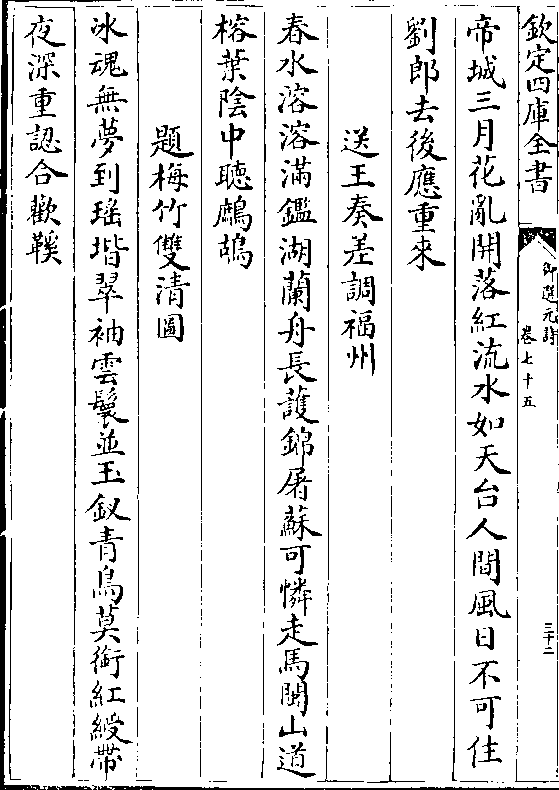 欽定四庫全書
御選元詩
卷七十五
三十二
帝城三月花亂開落紅流水如天台人間風日不可住
劉郎去後應重來
送王奏差調福州
春水溶溶滿鑑湖蘭舟長護錦屠蘇可憐走馬閩山道
榕葉陰中聽鷓鴣
題梅竹雙清圖
冰魂無夢到瑤堦翠袖雲鬟並玉釵青鳥莫銜紅綬帶
夜深重認合歡鞵